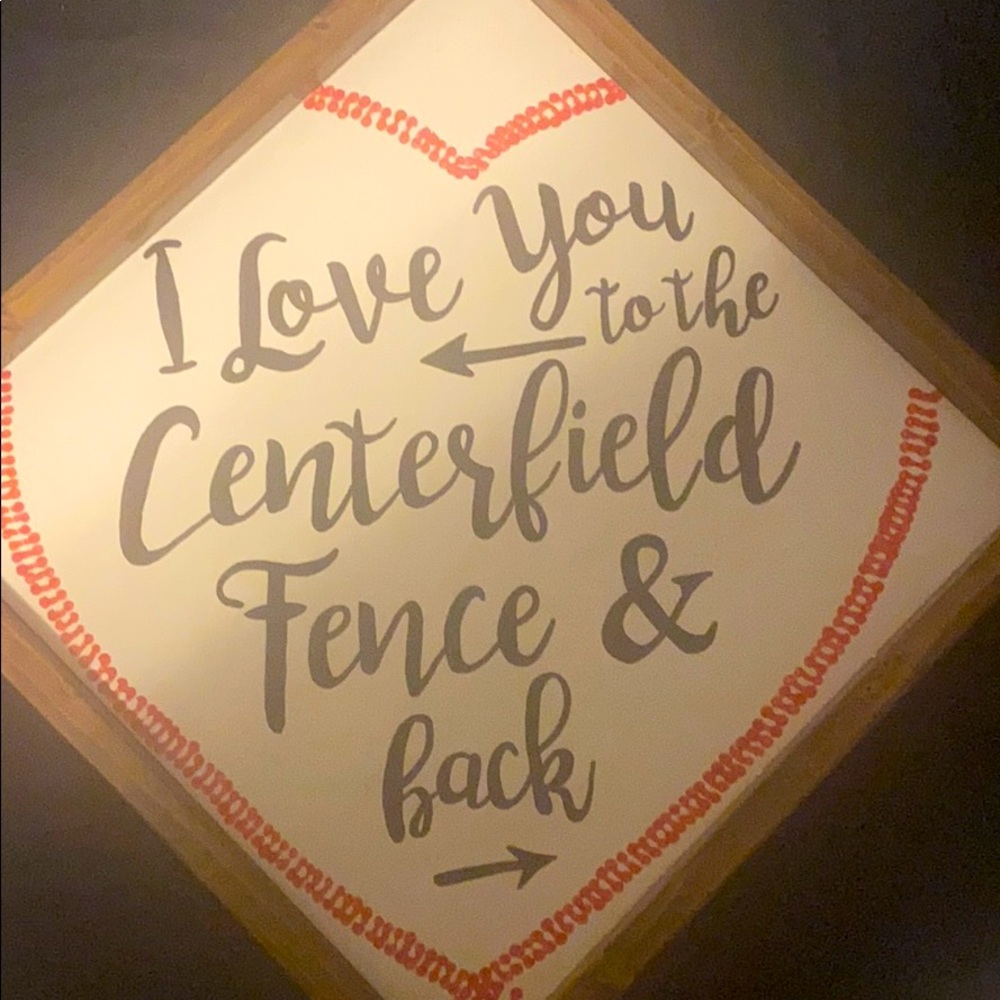 I Love You
to the
Centerfield
Fence &
back